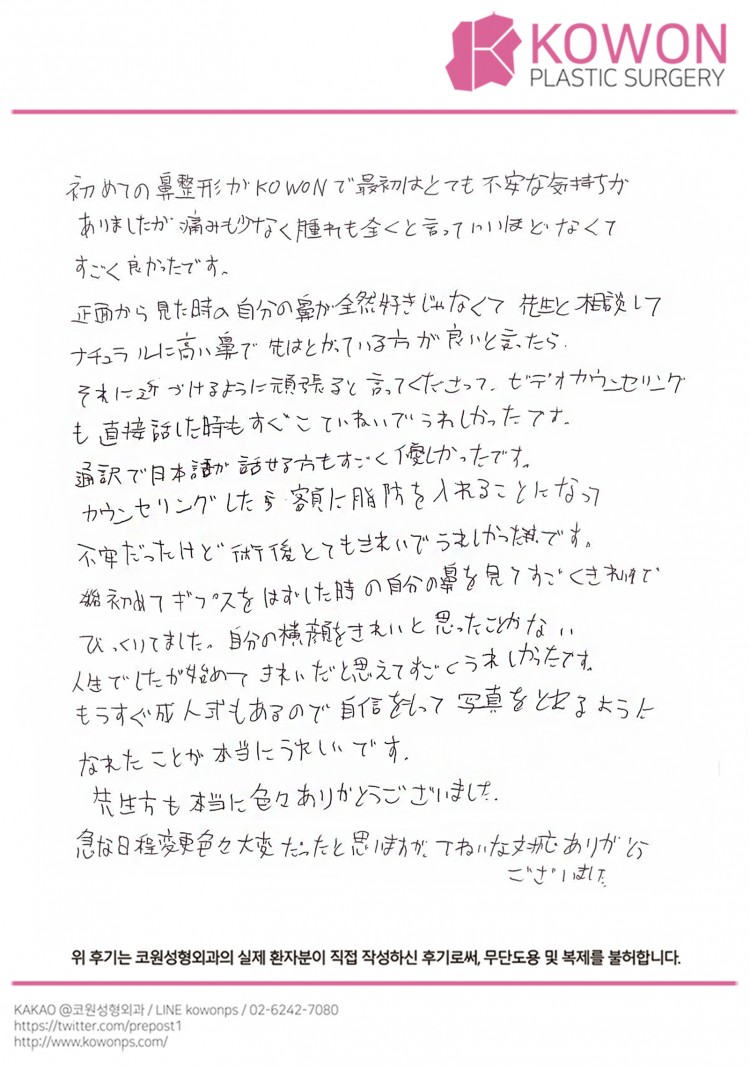 KOWON
PLASTIC SURGERY
初めての鼻整形がKOWONで最初はとても不安な気持ちが
ありましたが痛みも少なく腫れも全くと言っていいほどなくて
すごく良かったです。
正面から見た時の自分の鼻が全然好きじゃなくて 先生と相談して
ナチュラルに高い鼻で先はとがっている方が良いと言ったら
それに近づけるように頑張ると言ってくださって、ビデオカウンセリング
も直接話した時もすぐこていねいでうれしかったです。
通訳で日本語が話せる方もすごく優しかったです。
カウンセリングしたら額に脂肪を入れることになって
不安だったけど術後とてもきれいでうれしかったです。
初めてギプスをはずした時の自分の鼻を見てすごくきれいで
びっくりしてました。自分の横顔をきれいと思ったことがない
人生でしたが始めてきれいだと思えてすごくうれしかったです。
もうすぐ成人式もあるので自信をもって写真をとれるように
なれたことが本当にうれしいです。
先生方も本当に色々ありがとうございました。
急な日程変更色々大変だったと思いますが、ていねいな対応ありがとう
ございました
위 후기는 코원성형외과의 실제 환자분이 직접 작성하신 후기로써, 무단도용 및 복제를 불허합니다.
KAKAO @코원성형외과 / LINE kowonps / 02-6242-7080
https://twitter.com/prepost1
http://www.kowonps.com/